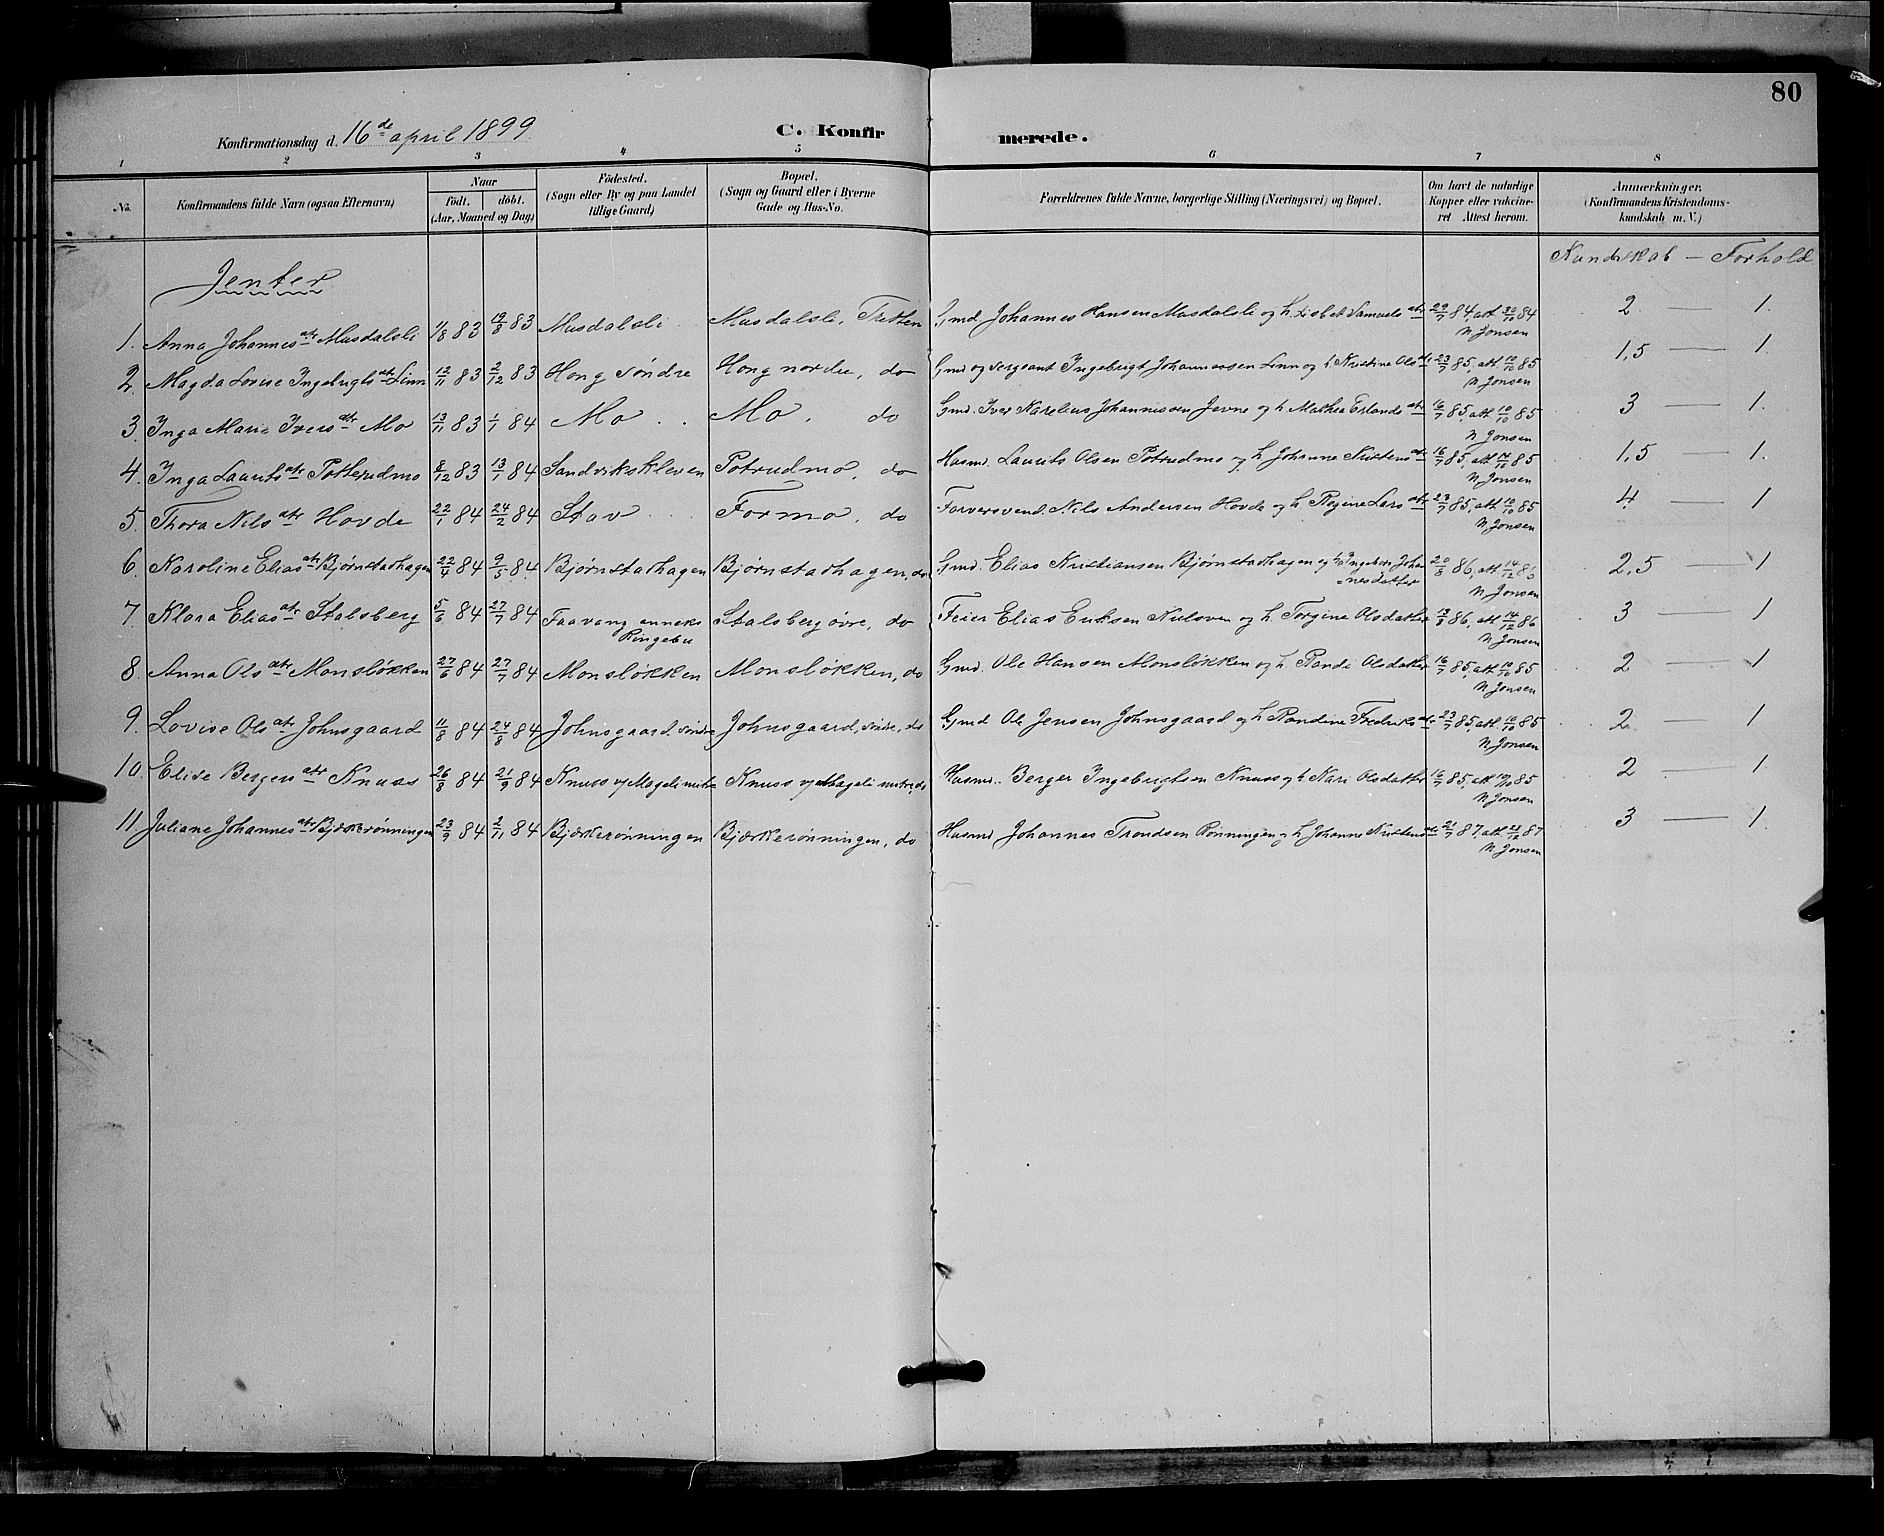 80
Konfirmationsdag d. 16de april 1899. C. Konfirmerede.
1 2 3 4 5 6 7 8
No. Konfirmandens fulde Navn (ogsaa Efternavn) Naar født. døbt. (Aar, Maaned og Dag) Fødested. (Sogn eller By og paa Landet tillige Gaard) Bopæl. (Sogn og Gaard eller i Byerne Gade og Hus-No. Forældrenes fulde Navne, borgerlige Stilling (Næringsvei) og Bopæl. Om havt de naturlige Kopper eller vakcineret Attest herom. Anmærkninger. (Konfirmandens Kristendomskundskab m. V.)
Kundskab — Forhold
Jenter
1. Anna Johannesdtr Musdalsli 1/8 83 19/8 83 Musdalsli Musdalsli, Tretten Gmd Johannes Hansen Musdalsli og h. Lisbet Samuelsdtr 29/7 84, att. 20/10 84 N Jonsen 2 — 1.
2. Magda Lovise Ingebrigtsdtr Linn 12/11 83 2/12 83 Hong søndre Hong nordre, do Gmd og sergeant Ingebrigt Johannessen Linn og h. Kristine Olsdtr 23/7 85, att 10/10 85 N Jonsen 1,5 — 1.
3. Inga Marie Iversdtr Mo 13/11 83 1/1 84 Mo Mo, do Gmd. Iver Karelius Johannessen Jevne og h Mathea Erlandsdtr 16/7 85, att 10/10 85 N Jonsen 3 — 1.
4. Inga Lauritsdtr Potterudmo 8/12 83 13/1 84 Sandvikskleven Potrudmo, do Husmd. Laurits Olsen Potrudmo og h Johanne Kristensdtr 16/7 85, att 10/10 85 N Jonsen 1,5 — 1.
5. Thora Nilsdtr Hovde 22/1 84 24/2 84 Stav Formo, do Farversvend. Nils Andersen Hovde og h Regine Larsdtr 23/7 85, att 10/10 85 N Jonsen 4 — 1
6. Karoline Eliasdtr Bjørnstadhagen 22/4 84 9/5 84 Bjørnstadhagen Bjørnstadhagen, do Gmd. Elias Kristiansen Bjørnstadhagen og h Ingeborg Johannesdatter 20/8 86, att 14/12 86 N Jonsen 2,5 — 1
7 Klara Eliasdtr Stalsberg 5/6 84 27/7 84 Faavang anneks Ringebu Stalsberg øvre, do Feier Elias Eriksen Nielsven og h Torgine Olsdatter 86, att 14/12 86 N Jonsen 3 — 1
8. Anna Olsdtr Monsløkken 27/6 84 27/7 84 Monsløkken Monsløkken, do Gmd. Ole Hansen Monsløkken og h Randi Olsdatter 16/7 85, att 10/10 85 N Jonsen 2 — 1
9. Lovise Olsdtr Johnsgaard 11/8 84 24/8 84 Johnsgaard, søndre Johnsgaard, søndre, do Gmd Ole Jensen Johnsgaard og h Randine Fredriksdtr 23/7 85, att 10/10 85 N Jonsen 2 — 1
10. Elise Bergersdtr Knuss 26/8 84 21/9 84 Knuss u/ Mageli mitre Knuss u/ Mageli mitre, do Husmd. Berger Ingebrigtsen Knuss og h Kari Olsdatter 16/7 85, att 10/10 85 N Jonsen 2 — 1.
11. Juliane Johannesdtr Bjerkerønningen 23/9 84 2/11 84 Bjerkerønningen Bjerkerønningen, do Husmd Johannes Trondsen Rønningen og h Johanne Kristensdtr 21/7 87, att 28/12 87 N Jonsen 3 — 1.